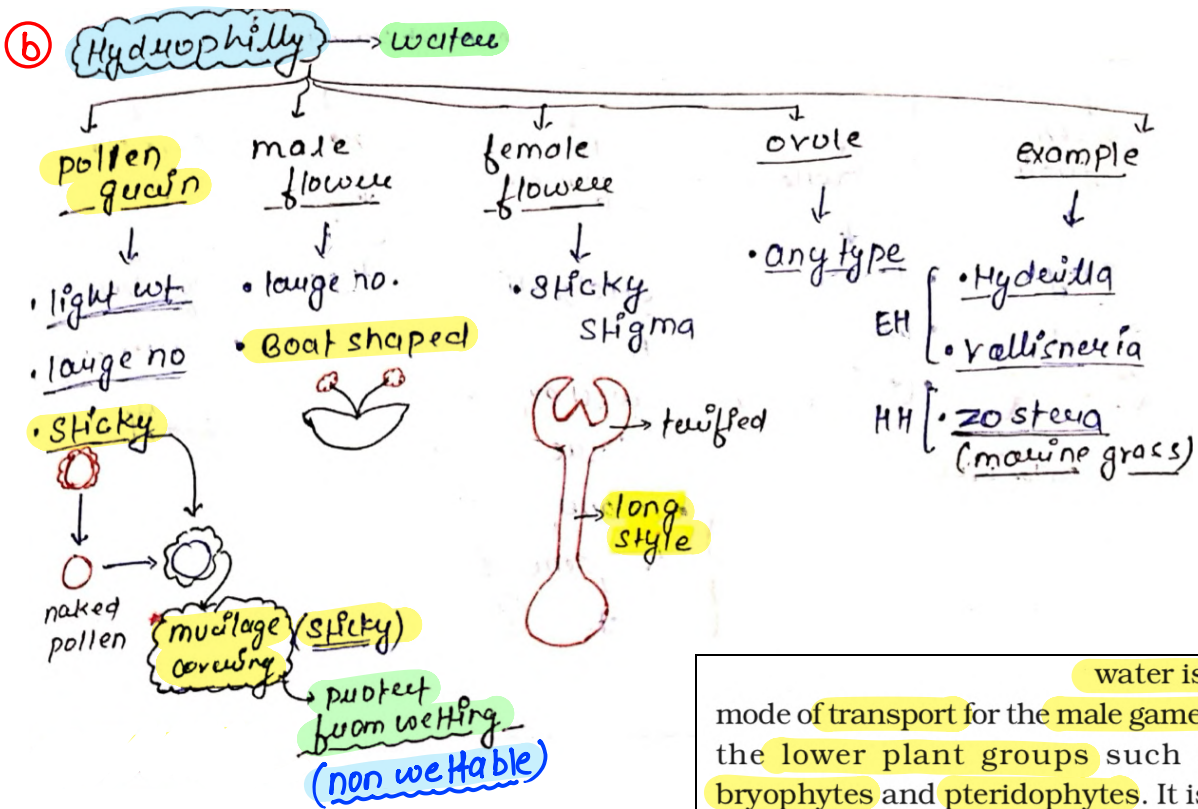 b
Hydrophilly → water
pollen
grain
• light wt
• large no
• sticky
naked
pollen
mucilage (sticky)
covering
protect
from wetting
(non wettable)
male
flower
• large no.
• Boat shaped
female
flower
• sticky
stigma
trified
long
style
ovule
• any type
example
EH
• Hydrilla
• Vallisneria
HH
• zostera
(marine grass)
water is
mode of transport for the male game
the lower plant groups such
bryophytes and pteridophytes. It is